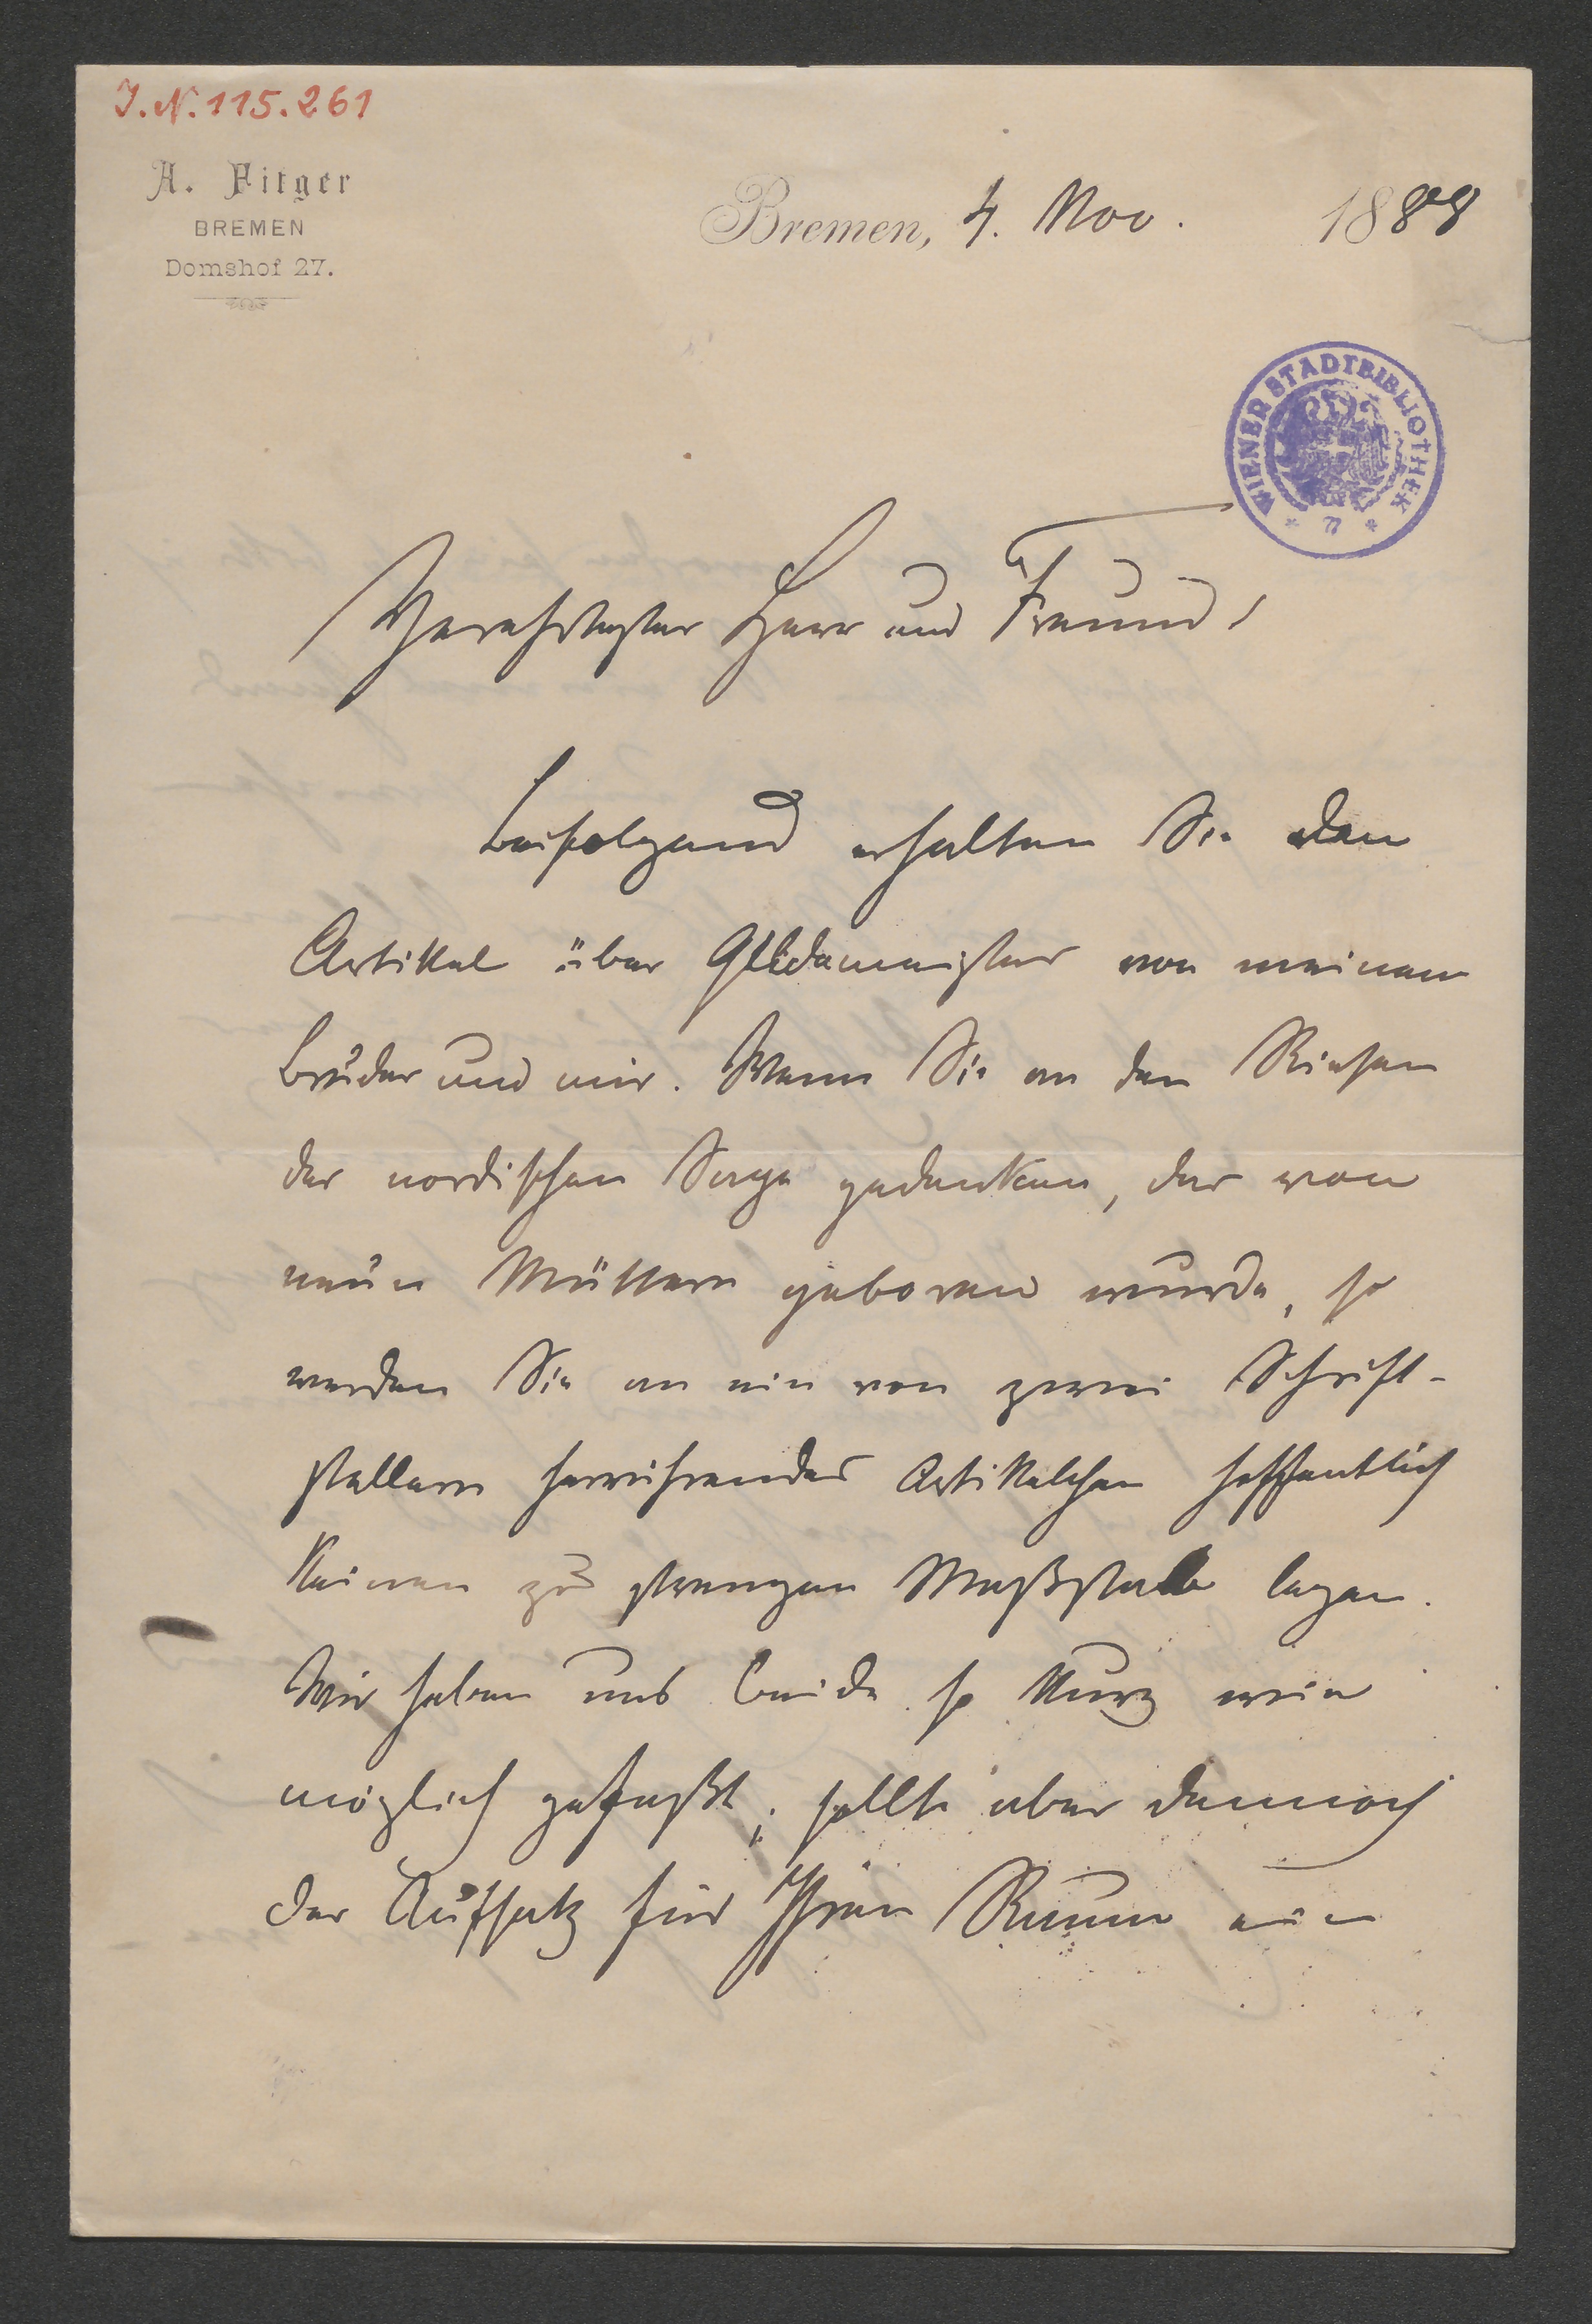 J.N. 115.261
A. Fitger
BREMEN
Domshof 27.
Bremen, 4. Nov. 1888
WIENER STADTBIBLIOTHEK
Verehrtester Herr und Freund,
beifolgend erhalten Sie den
Artikel über Gildemeister von meinem
Bruder und mir. Wenn Sie an den Riesen
der nordischen Sage gedenken, der von
neun Müttern geboren wurde, so
werden Sie an ein von zwei Schrift-
stellern herrührendes Artikelchen hoffentlich
keinen zu strengen Maßstab legen.
Wir haben uns beide so kurz wie
möglich gefaßt; sollte aber dennoch
der Aufsatz für Ihren Raum